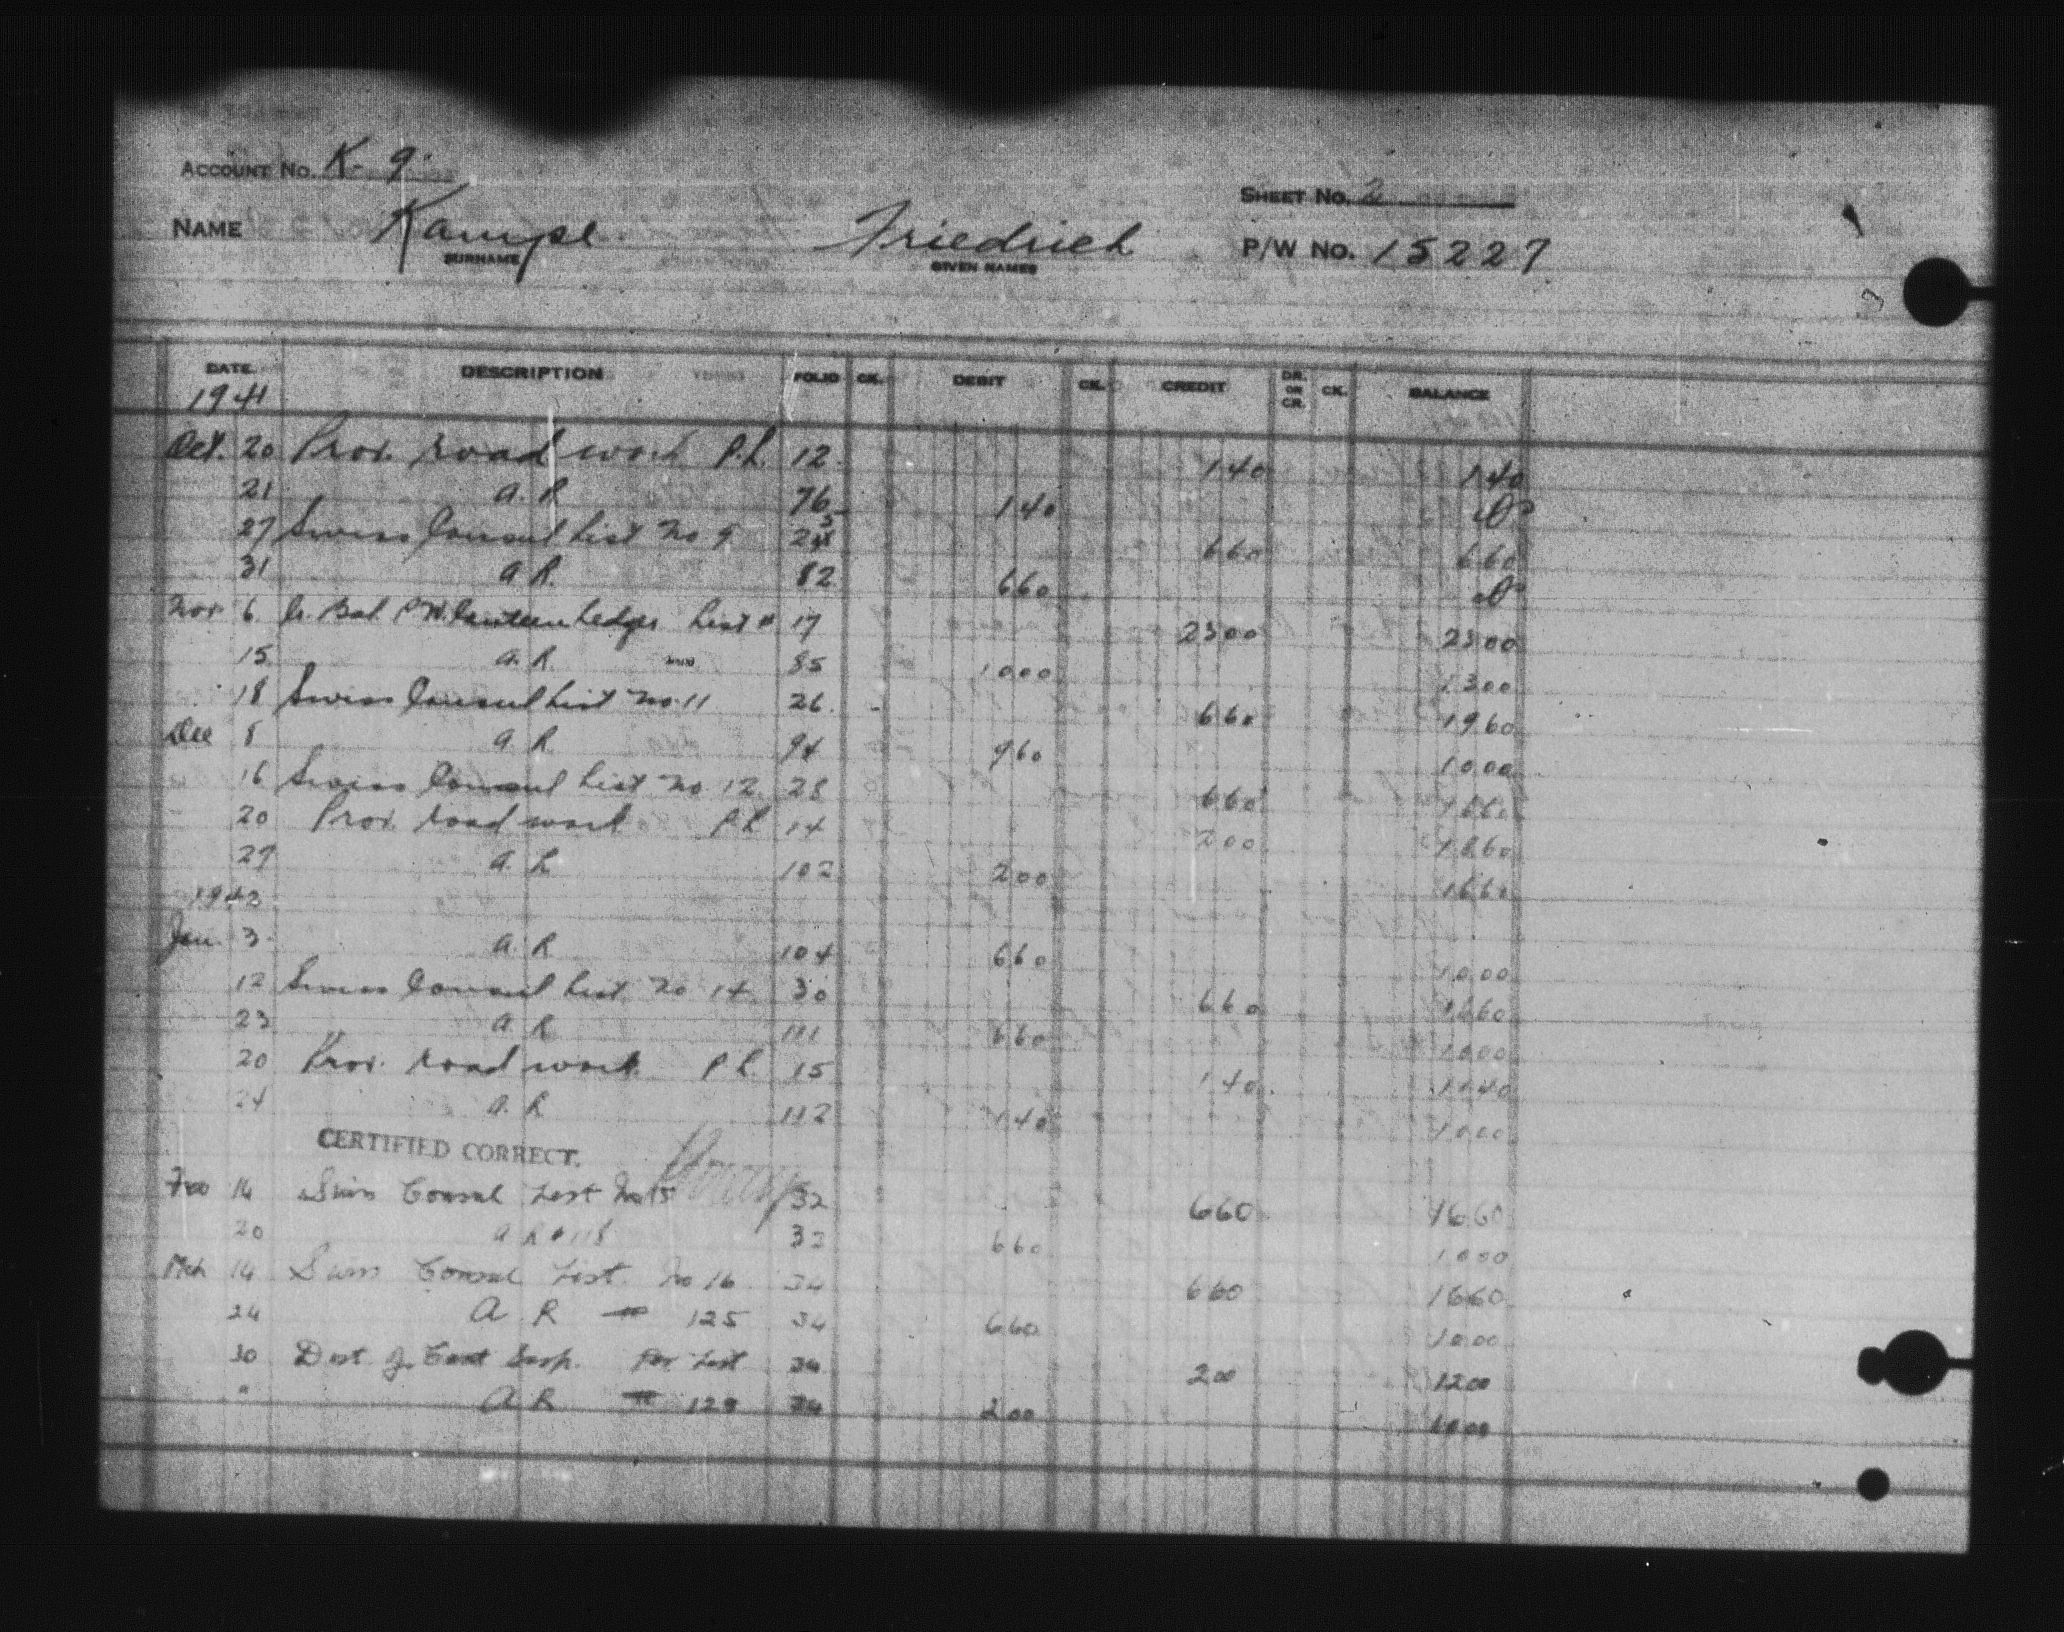 ACCOUNT NO. K-9
SHEET NO. 2
NAME Kampe Friedrich P/W NO. 15227
SURNAME GIVEN NAMES
DATE DESCRIPTION FOLIO CK. DEBIT CK. CREDIT DR. OR CR. CK. BALANCE
1941
Oct. 20 Prov. road work P.L. 12 140 140
21 A. R 76 140 0
27 Swiss Consul List No 9 660 660
31 A R. 82 660 0
Nov 6 Cr. Bal P.W. Canteen Ledger List # 17 2300 2300
15 A. R 85 1000 1300
18 Swiss Consul List No. 11 26 660 1960
Dec 8 A R 94 960 1000
16 Swiss Consul List No 12 28 660 1660
20 Prov. road work P L 14 200 1860
27 A. R 102 200 1660
1942
Jan. 3 A. R 104 660 1000
12 Swiss Consul List No 14 30 660 1660
23 A R 111 660 1000
20 Prov. road work P L 15 140 1140
24 A. R 112 140 1000
CERTIFIED CORRECT.
Feb 14 Swiss Consul List No 15 32 660 1660
20 A R # 118 32 660 1000
Mch 14 Swiss Consul List No 16 34 660 1660
24 A R # 125 34 660 1000
30 Dist. Per List 34 200 1200
" A R # 34 200 1000